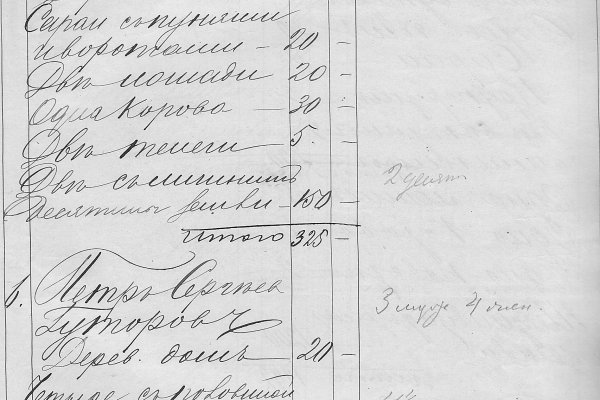 Сараи съ пунями
и воротами — 20 —
Двѣ лошади 20 —
Одна Корова — 30 —
Двѣ телеги 5. —
Двѣ съ
десятины земли — 150 — 2 десят
Итого 325 —
6. Петръ Сергѣев
Гуторовъ 3 муж 4 жен.
Дерев. домъ — 20 —